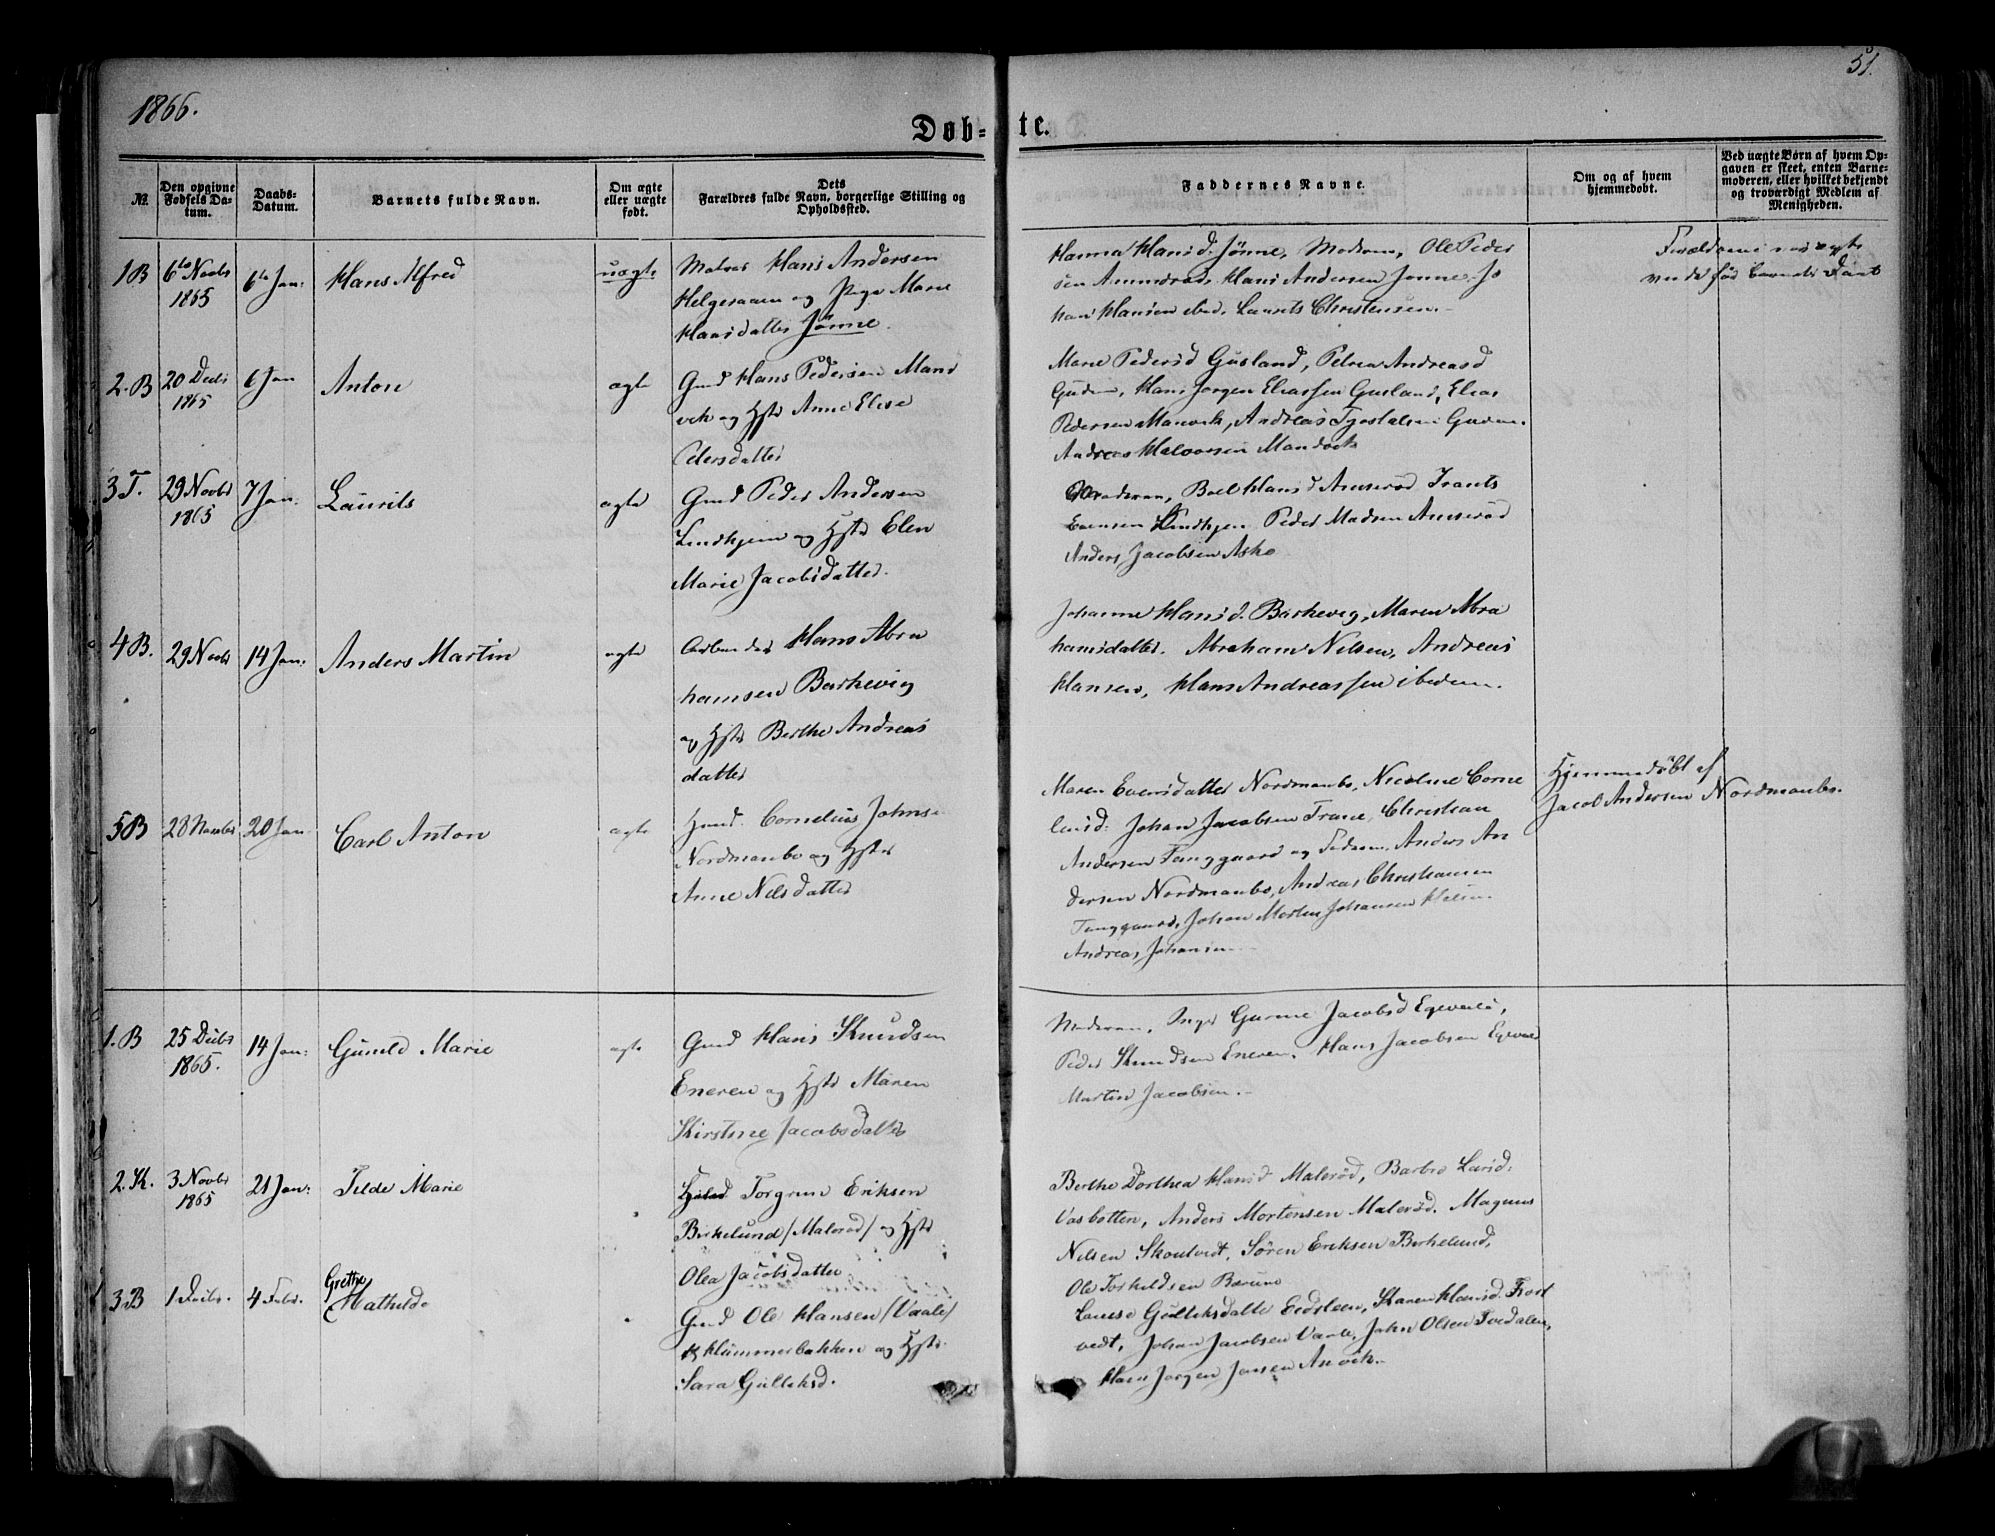 1866.
51.
Døb-
te.
№
Den opgivne Fødsels Da-tum.
Daabs-Datum.
Barnets fulde Navn.
Om ægte eller uægte født.
Dets Forældres fulde Navn, borgerlige Stilling og Opholdssted.
Faddernes Navne.
Om og af hvem hjemmedøbt.
Ved uægte Børn af hvem Op-gaven er skeet, enten Barne-moderen, eller hvilket bekjendt og troværdigt Medlem af Menigheden.
1B 6te Novbr 1865 6te Jan: Hans Alfred uægte
Matros Hans Andersen
Helgeraaen og Inge Marie
Hansdatter Jønne.
Hanna Hansd. Jønne, Moderen, Ole Peder
sen Hans Andersen Jonne. Jo
han Hansen ibd. Laurits Christensen.
Forældrene
før barnets Daab
2.B 20 Decbr 1865 6 Jan Anton ægte
Gmd Hans Pedersen Mand
vik og Hstr Anne Elise
Edersdatter
Marie Pedersd Gusland, Petrea Andreasd
Hans Jørgen Eliassen Gusland, Elias
Pedersen Manvik, Andreas
Andreas Halvorsen Mandvik
3T. 29 Novbr 1865 7 Jan. Laurits ægte
Gmd Peder Andersen
Lindhjem og Hstr Elen
Marie Jacobsdatter.
Moderen, Boel Hansd Amerød
Evensen Lindhjem Peder Madsen Amerød
Anders Jacobsen Asko
4B. 29 Novbr 14 Jan: Anders Martin ægte
Arbeider Hans Abra
hamsen Barkevig
og Hstr Berthe Andreas
datter
Johanne Hansd. Barkevig, Maren Abra
hamsdatter. Abraham Nilsen, Andreas
Hansen, Hans Andreassen ibidem.
5B 28 Novbr 20 Jan Carl Anton ægte
Gmd. Cornelius Johns
Nordmanbo og Hstr
Anne Nilsdatter
Maren Evensdatter Nordmanbo, Nicoline Corne
liusd: Johan Jacobsen Christian
Andersen Tanggaard og Anders An
dersen Nordmanbo, Andreas Christiansen
Tanggaard, Johan Morten Johansen
Andreas Johansen
Hjemmedøbt af
Jacob Andersen Nordmanbo.
1.B 25 Decbr 1865. 14 Jan: Gunild Marie ægte
Gmd Hans Knudsen
Eneren og Hstr Maren
Kirstine Jacobsdatter
Moderen, Inger Gurine Jacobsd
Peder Knudsen Eneren. Hans Jacobsen
Martin Jacobsen.
2.K. 3 Novbr 1865 21 Jan: Tilde Marie
Torgrim Eriksen
Birkelund /Malerød/ og Hstr
Olea Jacobsdatter
Berthe Dorthea Hansd Malerød, Barbro Larsd:
Vasbotten, Anders Mortensen Malerød. Magnus
Nilsen Skoutvedt, Søren Eriksen Birkelund,
Ole Torkildsen
3.B 1 Decbr. 4 Febr. Grethe Mathilde
Gmd Ole Hansen /Vaale/
Klummerbakken og Hstr
Sara Gulliksd.
Gulliksdatter Eidsteen, Karen Hansd.
vedt, Johan Jacobsen Vaale, John Olsen Tvedalen,
Hans Jørgen Jansen Anvik.